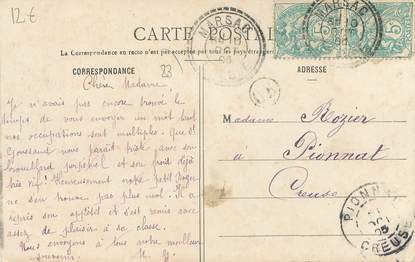 12€
MARSAC
CARTE POSTALE
MARSAC
5
5
La Correspondance au recto n'est pas acceptée par
CORRESPONDANCE
ADRESSE
23
Chère Madame,
Je n'avais pas encore trouvé le
temps de vous envoyer un mot
nos occupations sont multiples. Que St
Goussaud nous paraît triste avec son
brouillard perpétuel et son froid déjà
très vif. Heureusement notre petit Roger
ne s'en trouve pas plus mal. Il a
repris son appétit et s'est remis avec
assez de plaisir à sa classe.
Nous envoyons à tous notre meilleur
souvenir.
Madame Rozier
à Pionnat
Creuse
PIONNAT
CREUSE